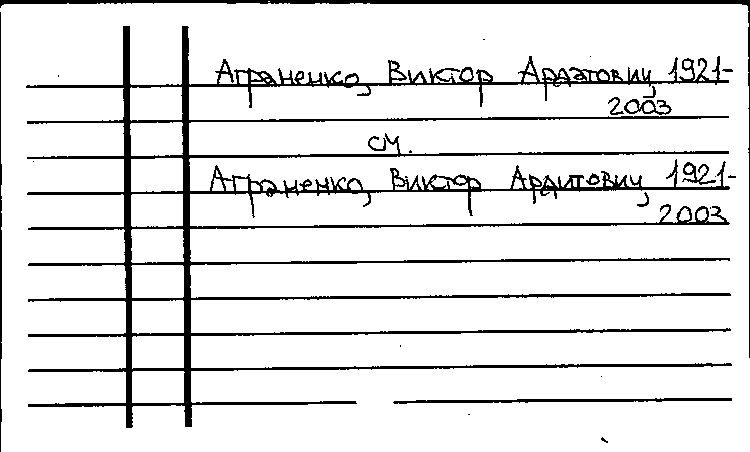 Аграненко, Виктор Ардатович, 1921-
2003
см.
Аграненко, Виктор Ардитович, 1921-
2003